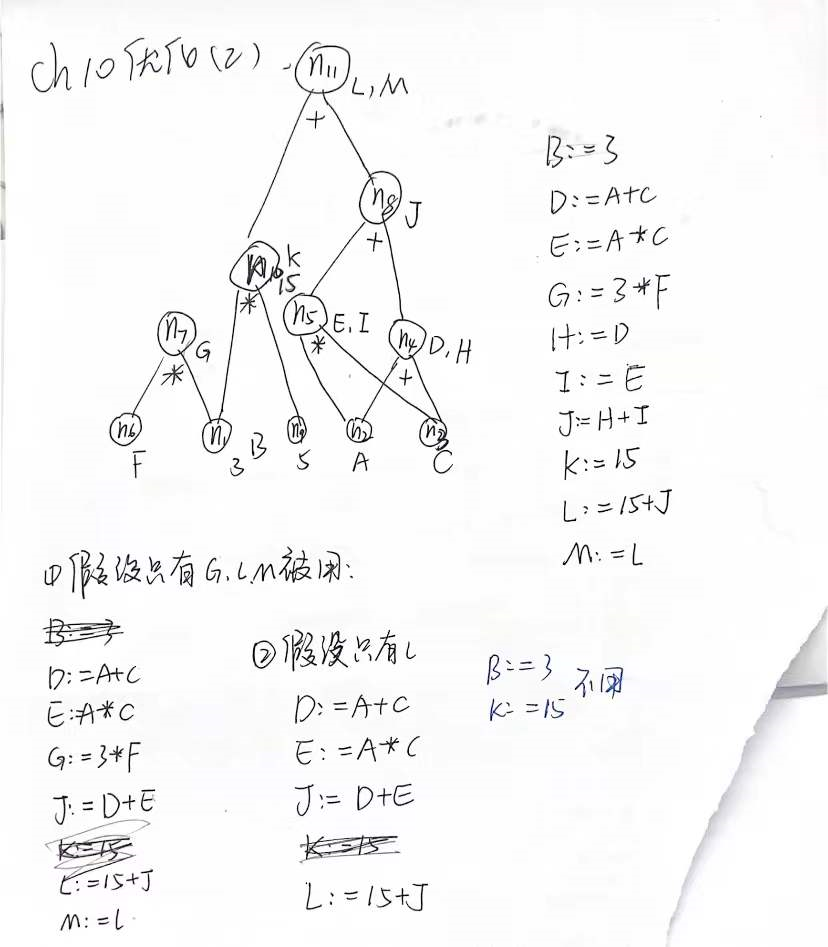 ch10优化(2).
n11
L,M
+
n8
J
+
n10
K
15
*
n5
E,I
*
n4
D,H
+
n7
G
*
n6
F
n1
3
B
n9
5
n2
A
n3
C
B:=3
D:=A+C
E:=A*C
G:=3*F
H:=D
I:=E
J:=H+I
K:=15
L:=15+J
M:=L
①假设只有G,L,M被用:
B:=3
D:=A+C
E:=A*C
G:=3*F
J:=D+E
K:=15
L:=15+J
M:=L
②假设只有L
D:=A+C
E:=A*C
J:=D+E
K:=15
L:=15+J
B:=3
K:=15
不用